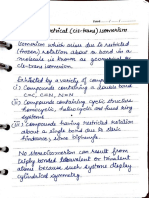 Date
Geometrical (Cis-trans) Isomerism
Isomerism which arise due to restricted
(frozen) rotation about a bond in a
molecule is known as geometrical or
cis-trans isomerism.
Exhibited by a variety of compounds
(i) Compounds containing a double bond
C=C, C=N, N=N
(ii) Compounds containing cyclic structure
homocyclic, heterocyclic and fused ring
systems.
(iii) Compounds having restricted rotation
about a single bond due to steric
hindrance
No stereoisomerism can result from
triply bonded tetravalent or trivalent
atoms because such systems display
cylindrical symmetry.